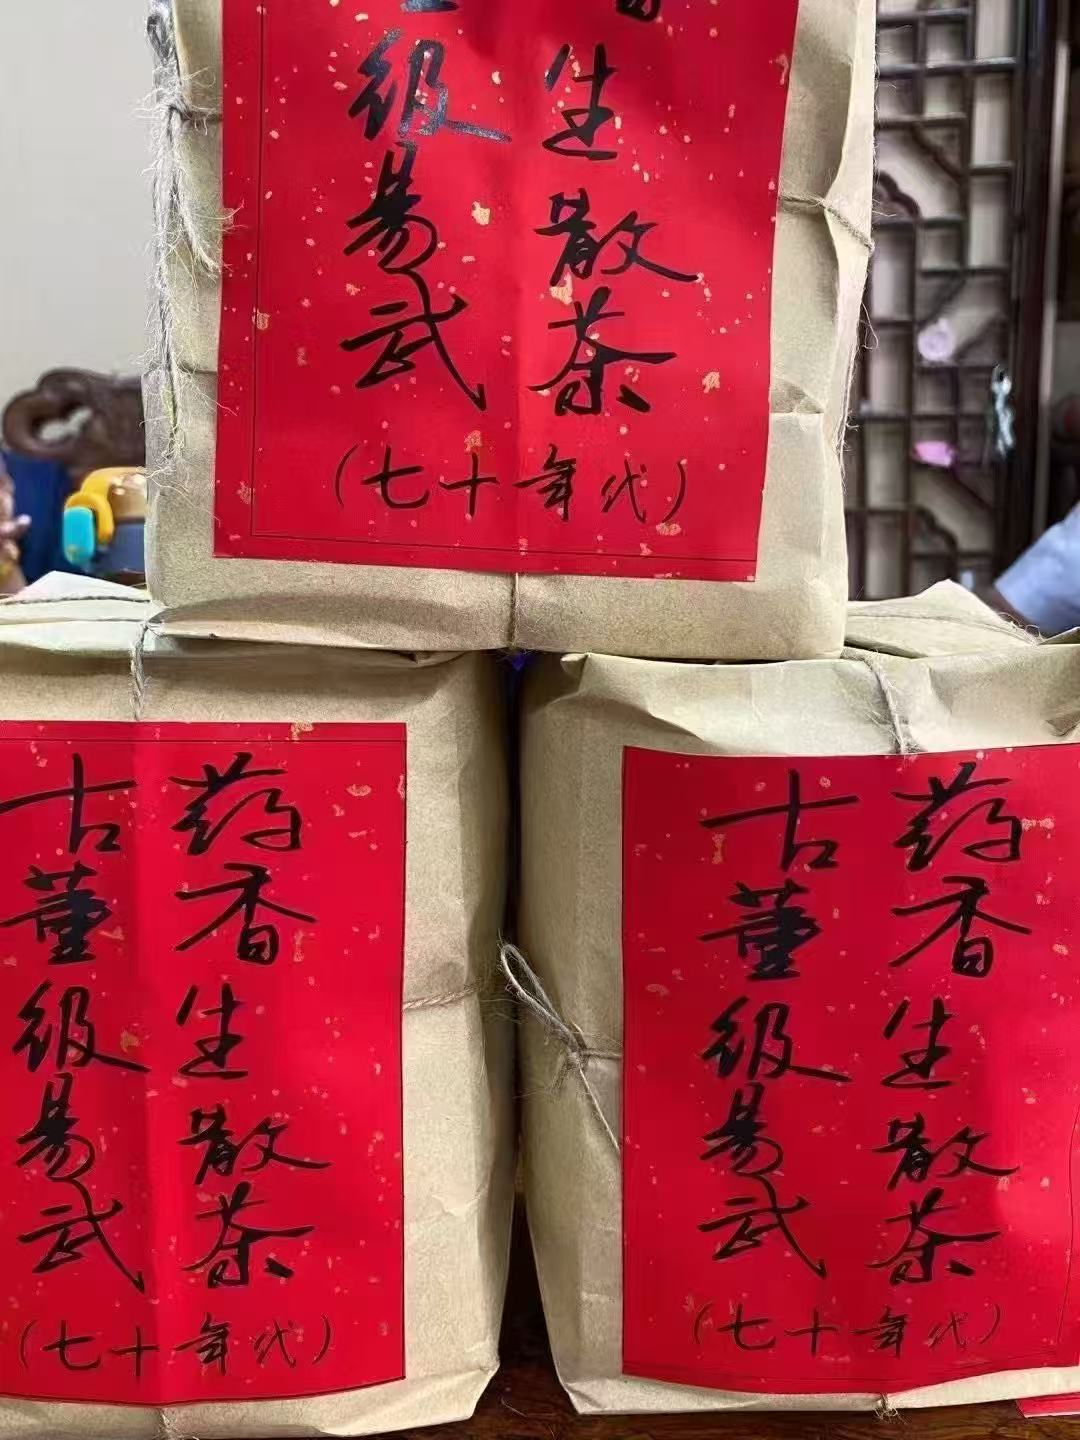 生散茶
级易武
（七十年代）
药香生散茶
古董级易武
（七十年代）
药香生散茶
古董级易武
（七十年代）